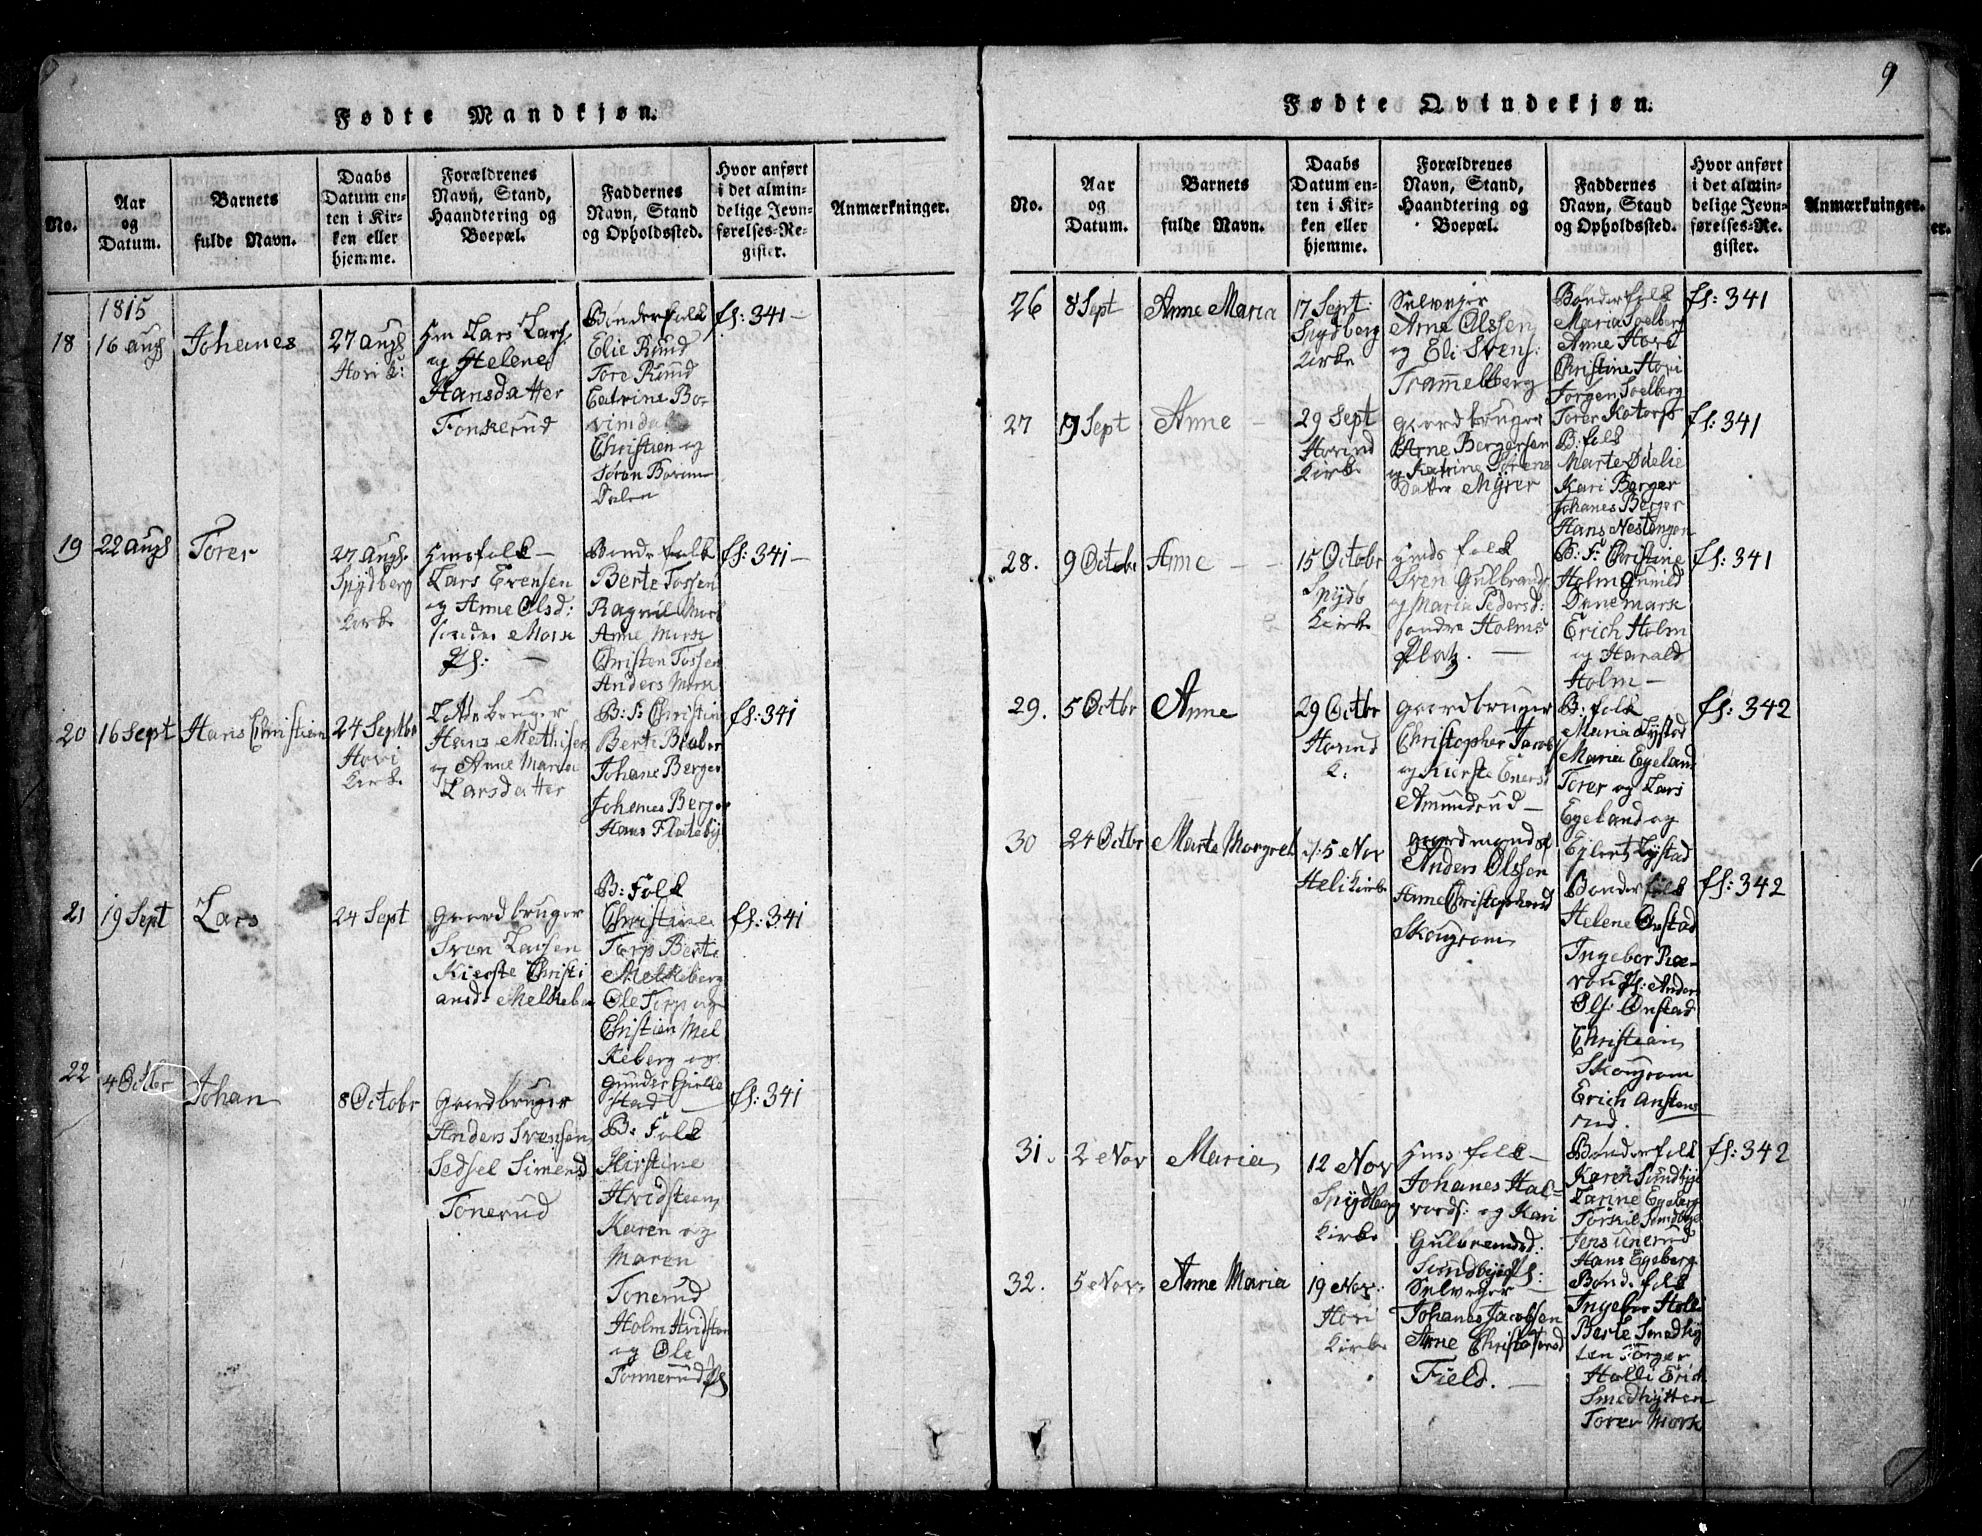 9
Fødte Mandkjøn.
No.
Aar
og
Datum.
Barnets
fulde Navn.
Daabs
Datum en-
ten i Kir-
ken eller
hjemme.
Forældrenes
Navn, Stand,
Haandtering og
Boepæl.
Faddernes
Navn, Stand
og Opholdssted.
Hvor anført
i det almin-
delige Jevn-
førelses-Re-
gister.
Anmærkninger.
1815
18
16 Augs
Johanes
27 Augs
Hovi K:
Lars Lars
og Helene
Hansdatter
Fonkerud
Bønderfolk
Elie Ruud
Tore Ruud
Catrine Bo-
vimdal
Christian og
Søren Bovim
Dalen
fs: 341 –
19
22 Augs
Torer
27 Augs
Spydberg
Kirke
Huusfolk –
Lars Evensen
og Anne Olsd:
søndre Mørk
Ps: –
Bønderfolk
Berte Fossen
Ragnil Mørk
Anne Mørk
Christen Fossen
Anders Mørk
fs: 341 –
20
16 Sept
Hans Christian
24 Septbr
Hovi
Kirke
Hans Mathisen
og Anne Maria
Larsdatter
B: F: Christin
Berte
Johane Berger
Johanes Berger
Hans Flateby
fs: 341
21
19 Sept
Lars
24 Sept
Gaardbruger
Sven Lassen
Kierste Christi
ansd: Melkeber
B: Folk
Christine
Torp Berte
Melkeberg
Ole Torp og
Christian Mel
keberg og
Gunder Gielle
stad –
fs: 341
22
4 Octbr
Johan
8 Octobr
Gaardbruger
Anders Svensen
Sedsel Simensd
Tonerud
B: Folk
Kirstine
Hvidsteen
Karen og
Maren
Tonerud
Holm Hvidsten
og Ole
Tonnerud Ps
fs: 341
Fødte Qvindekjøn.
No.
Aar
og
Datum.
Barnets
fulde Navn.
Daabs
Datum en-
ten i Kir-
ken eller
hjemme.
Forældrenes
Navn, Stand,
Haandtering og
Boepæl.
Faddernes
Navn, Stand
og Opholdssted.
Hvor anført
i det almin-
delige Jevn-
førelses-Re-
gister.
Anmærkninger.
26
8 Sept
Anne Maria
17 Sept:
Spydberg
Kirke
Selvejer
Arne Olssen
og Eli Svens:
Trammelberg
Bønderfolk
Maria Soelberg
Anne Hovi
Christine Hovi
Jørgen Soelberg
Torer
fs: 341
27
19 Sept
Anne –
29 Sept
Hovind
Kirke
Gaardbruger
Arne Bergersen
og Katrine Sørens
Datter Myrer
B: folk
Marte Dælie
Kari Berger
Johanes Berger
Hans Nestengen
fs: 341
28.
9 Octobr
Anne – –
15 Octobr
Spydb
Kirke
Huus folk
Sven Gulbrands
og Maria Pedersd:
søndre Holms
Platz. –
B: F: Christine
Holm Gunild
Danemark
Erich Holm
og Harald
Holm –
fs: 341
29.
5 Octbr
Anne
29 Octbr
Hovind
K.
Gaardbruger
Christopher Jacobs
og Kierste Enersd
Amundrud –
B: folk
Maria Lystad
Maria Egeland
Torer og Lars
Egeland og
Eylert Lystad
fs: 342
30
24 Octbr
Marte Margret
d: 5 Nov
Heli Kirke
Gaardmands
Anders Olssen
Anne Christophersd
Skougrom
Bønderfolk
Helene Onstad
Ingebor Ræ-
vou Ps: Anders
Ols: Onstad
Christian
Skougrom
Erich Anstens
rud.
fs: 342
31.
2 Nov
Maria
12 Nov
Spydberg
Kirke
Huus folk –
Johanes Hal-
vords: og Kari
Gulbrandsd:
Sundbye Ps:
Bønderfolk
Karen Sundbye
Larine Egeberg
Torskil Sundbye
Jens Unerud
Hans Egeberg
fs: 342
32.
5 Nov.
Anne Maria
19 Nov:
Hovi
Kirke
Selvejer –
Johanes Jacobsen
Anne Christofersd
Field. –
Bønd. folk
Ingebor Holli
Berte Smedhyt
ten Torger
Holli Erich
Smedhytten
Torer Mørk